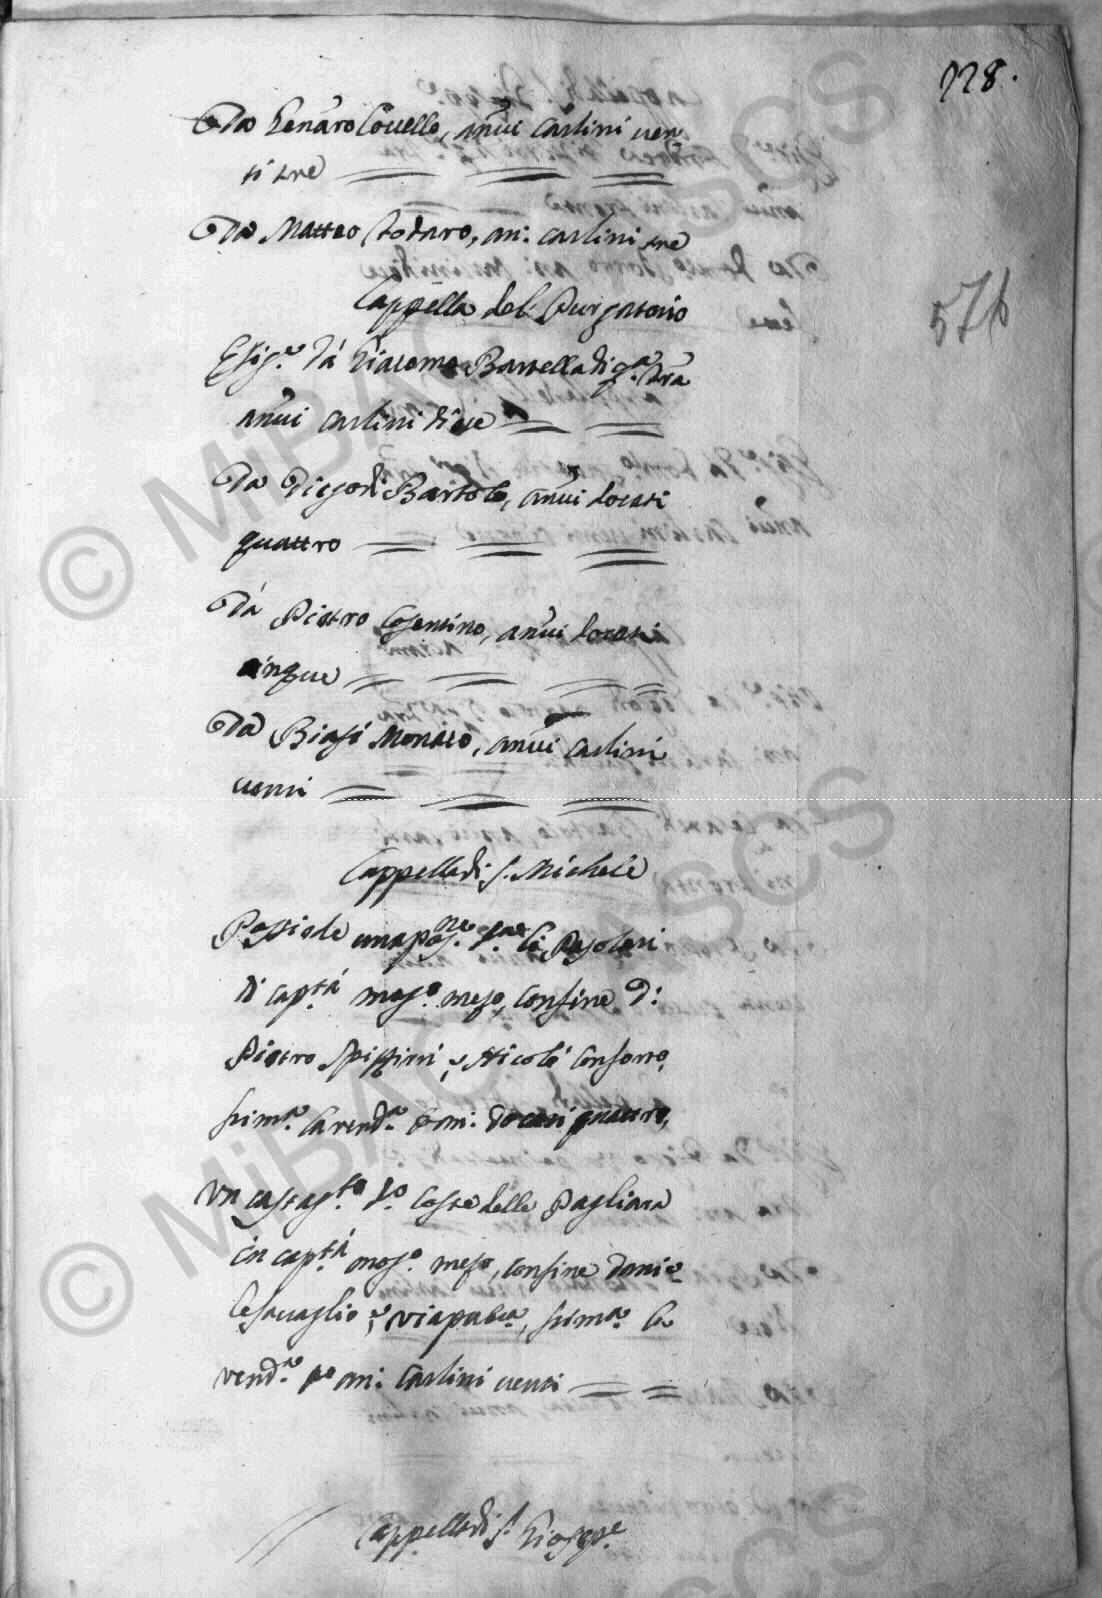 728.
576
Da Genaro Covello, annui carlini ven
ti tre
Da Matteo Todaro, an: carlini tre
Cappella del Purgatorio
Esig.e da Giacomo Barrella di q.a T.ra
annui carlini diece
Da Diego di Bartolo, annui docati
quattro
Dà Pietro Cosentino, annui docati
cinque
Da Biasi Monaco, annui carlini
venti
Cappella di S. Michele
Possiede una pos.ne d.a li Pasolari
di cap.tà mog.o mezo, confine di
Pietro Spizzirri, e Nicolò Consorto,
stim.a la rend.a an: docati quattro,
Un castag.to d.o Coste delle Pagliara
in cap.tà mog.o mezo, confine
e, via pub.ca, stim.a la
rend.a p an: carlini venti
Cappella di S. Gioseppe
© MiBAC ASCS
© MiBAC ASCS